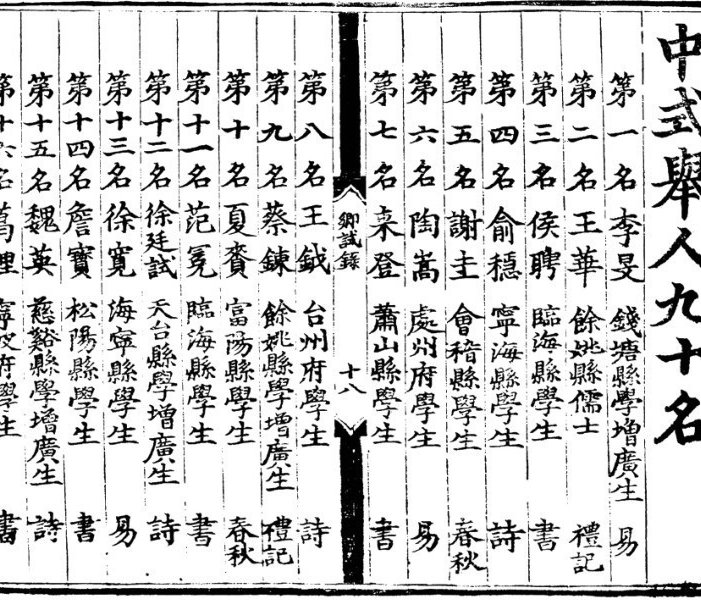 中式舉人九十名
第一名李旻 錢塘縣學增廣生 易
第二名王華 餘姚縣儒士 禮記
第三名侯聘 臨海縣學生 書
第四名俞穩 寧海縣學生 詩
第五名謝圭 會稽縣學生 春秋
第六名陶嵩 處州府學生 易
第七名來登 蕭山縣學生 書
鄉試錄
十八
第八名王鉞 台州府學生 詩
第九名蔡鍊 餘姚縣學增廣生 禮記
第十名夏賚 富陽縣學生 春秋
第十一名范冕 臨海縣學生 書
第十二名徐廷試 天台縣學增廣生 詩
第十三名徐寬 海寧縣學生 易
第十四名詹寶 松陽縣學生 書
第十五名魏英 慈谿縣學增廣生 詩
第十六名 府學生 書